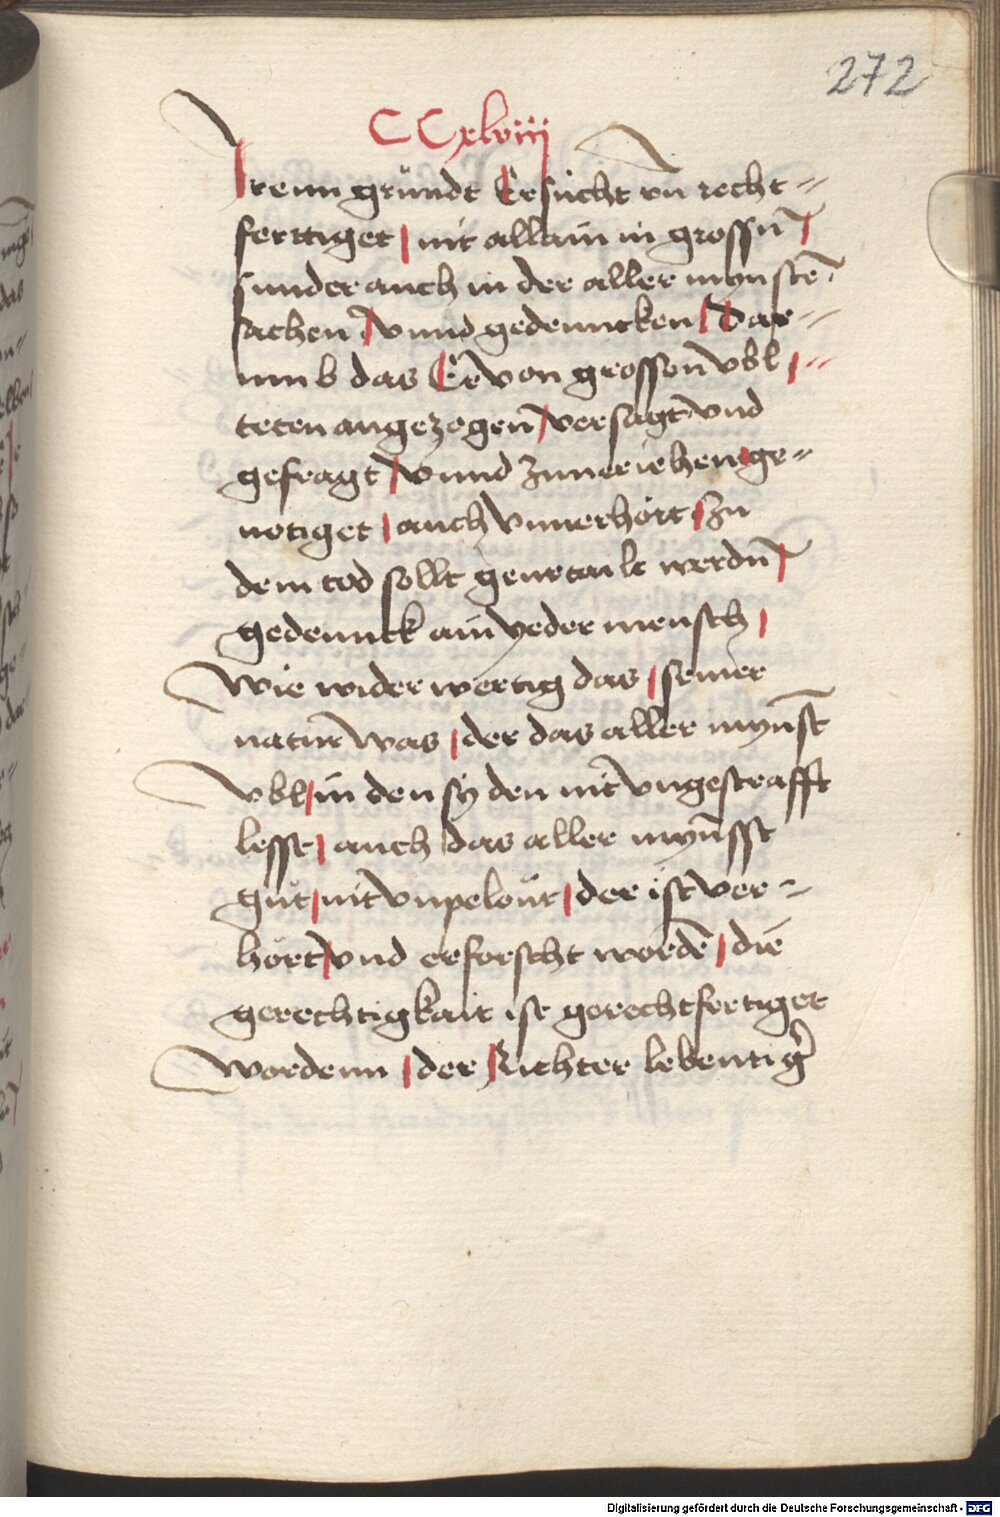 272
CCxlviij
Irenn gründt Ersücht vn̄ recht=
ferttiget | nit allain in grossn̄ |
sunder auch in der aller mynstē
sachen | vnnd gedenncken | Dar=
umb das Er von grossen vbl | =
teten angezogen̄ | versagt vnd
gefragt | vnnd zuueriehen | ge=
nötiget | auch vnuerhört | zu
dem tod sollt geurtailt werdn̄ |
gedennck ain yeder mensch |
wie widerwertig das | seiner
natur was | der das aller mynst̄
vbl | in den sy den nit vngestrafft
lesst | auch das aller myn̄sst
gůt | nit vnpelont | der ist ver=
hört | vnd erforscht wordē | die
gerechtigkait ist gerechtfertiget
wordenn | der Richter lebentig̓
Digitalisierung gefördert durch die Deutsche Forschungsgemeinschaft - DFG